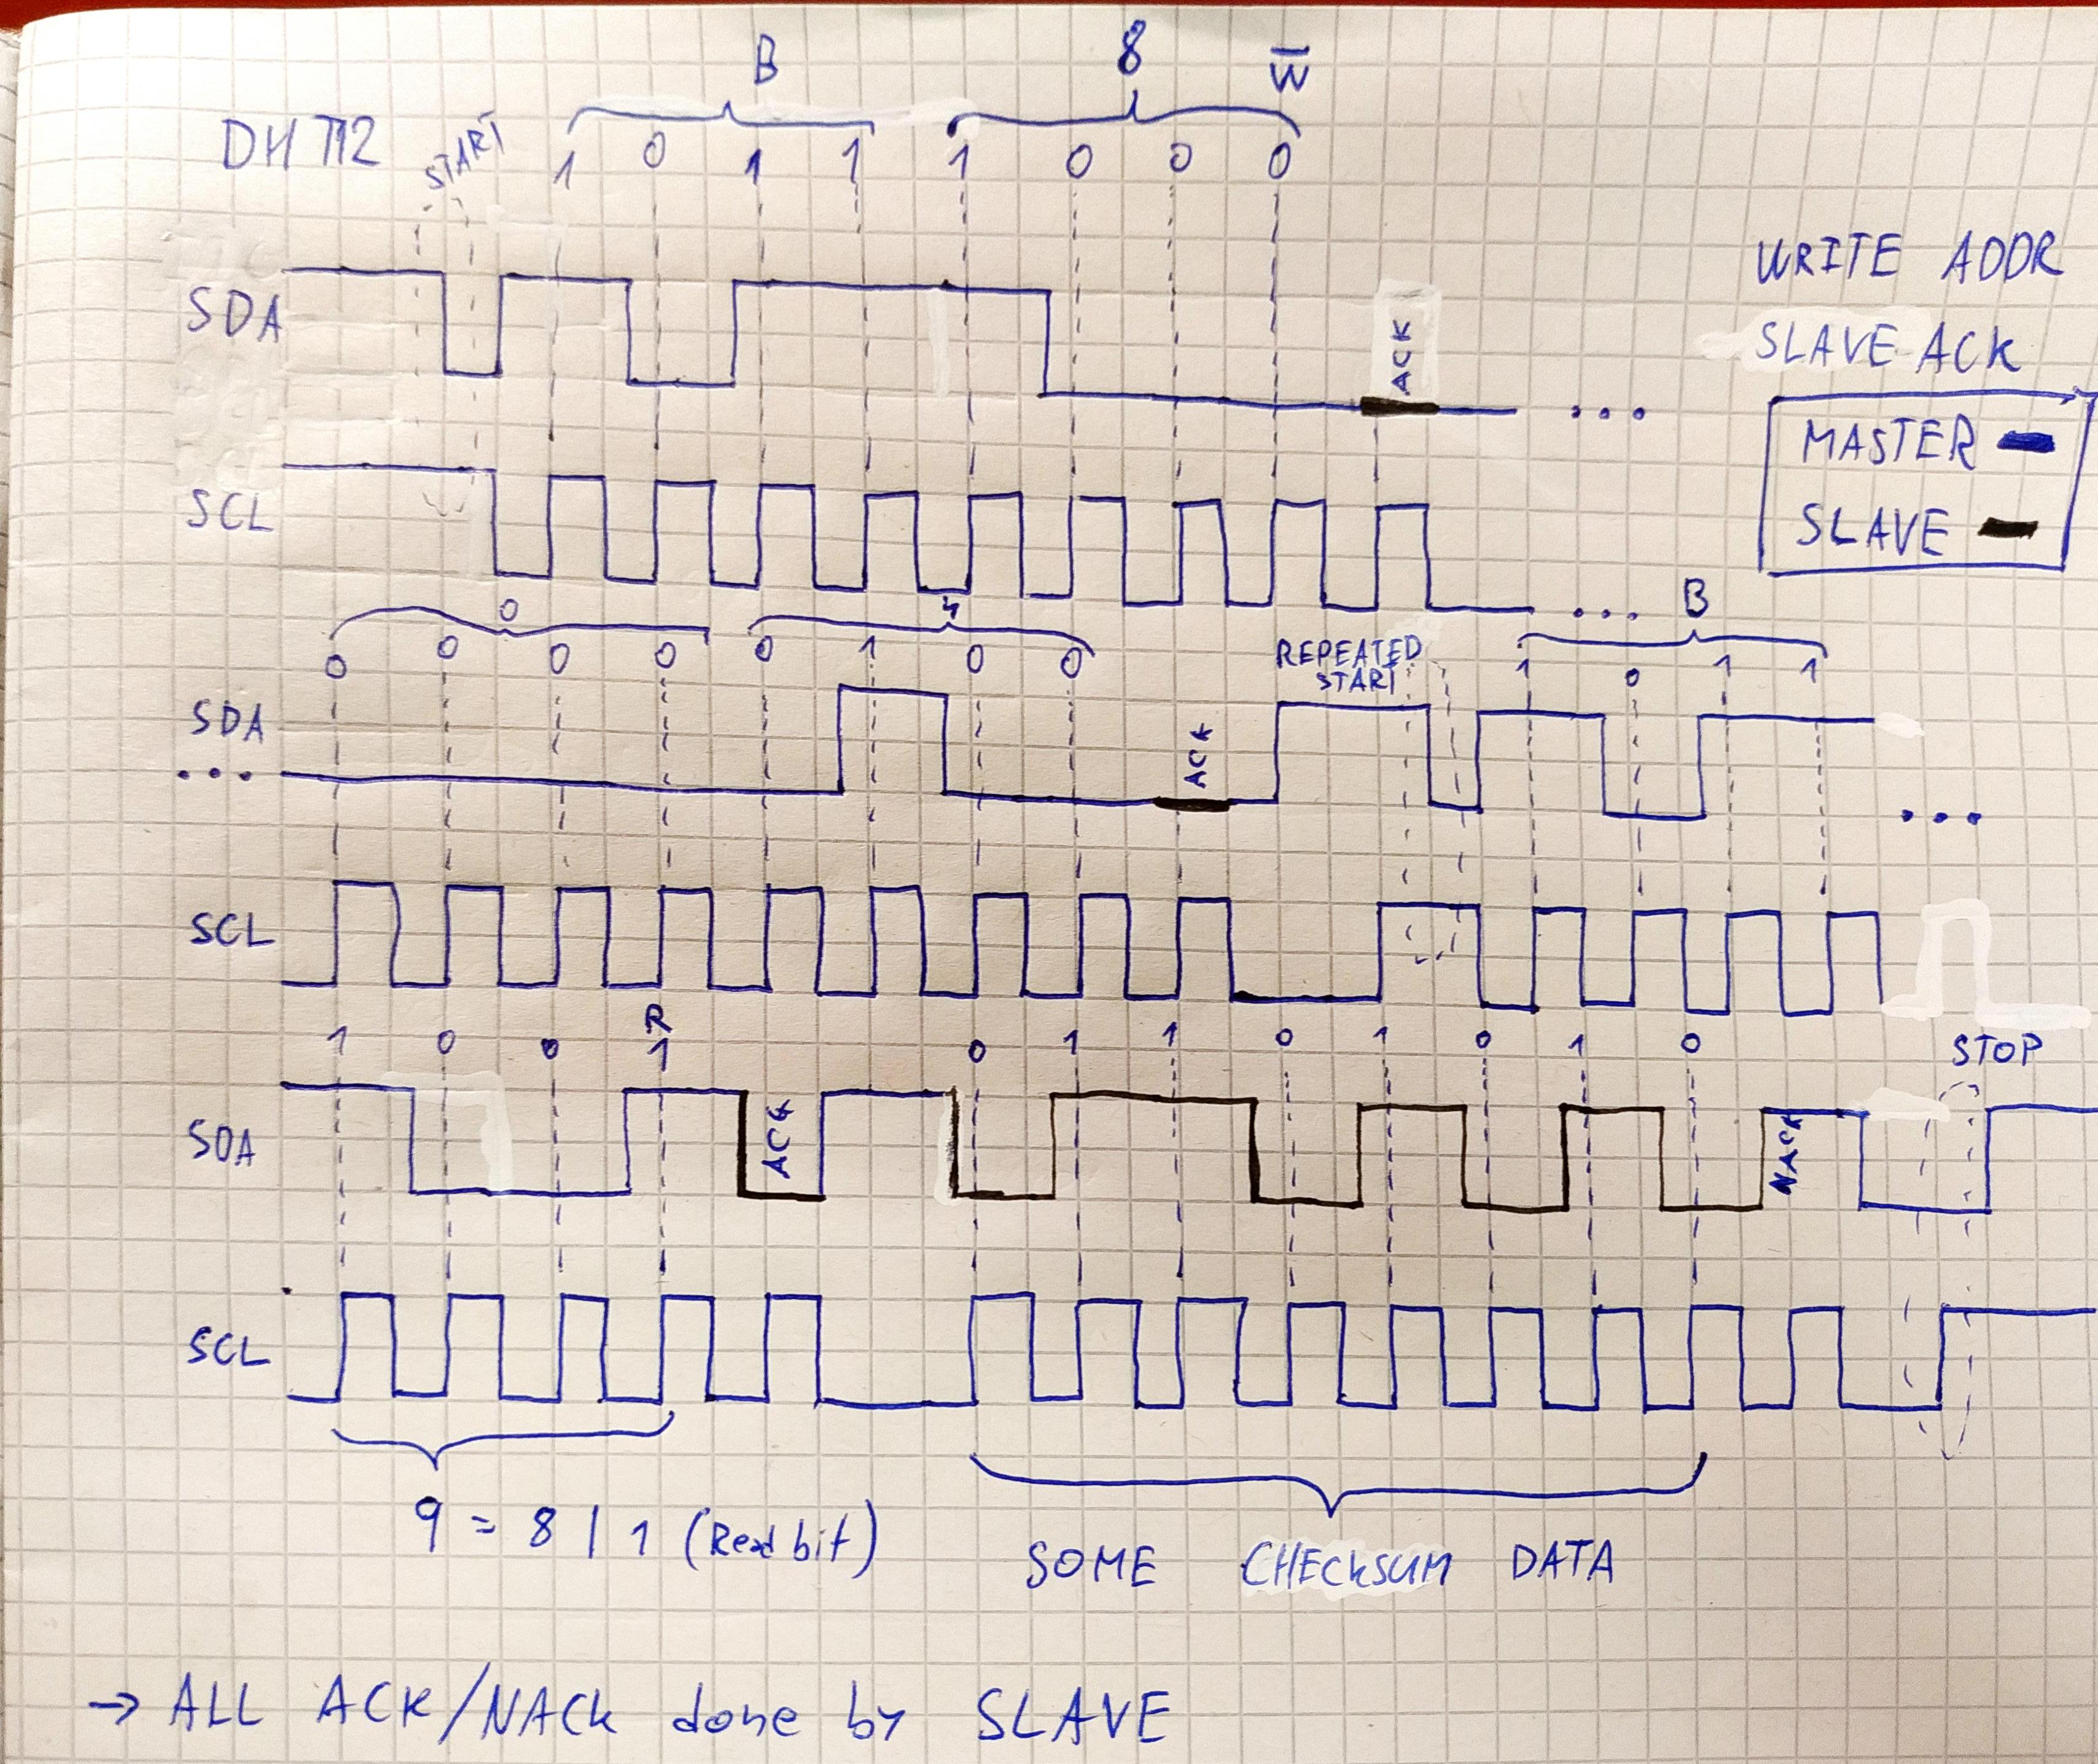 B 8 W̅
DHT12 START 1 0 1 1 1 0 0 0
WRITE ADDR
SDA
ACK
SLAVE ACK
MASTER
SCL
SLAVE
0 4 ... B
0 0 0 0 0 1 0 0 REPEATED START 1 0 1 1
SDA
ACK
...
SCL
R
1 0 0 1 0 1 1 0 1 0 1 0 STOP
SDA ACK NACK
SCL
9 = 8 | 1 (Read bit)
SOME CHECKSUM DATA
→ ALL ACK/NACK done by SLAVE